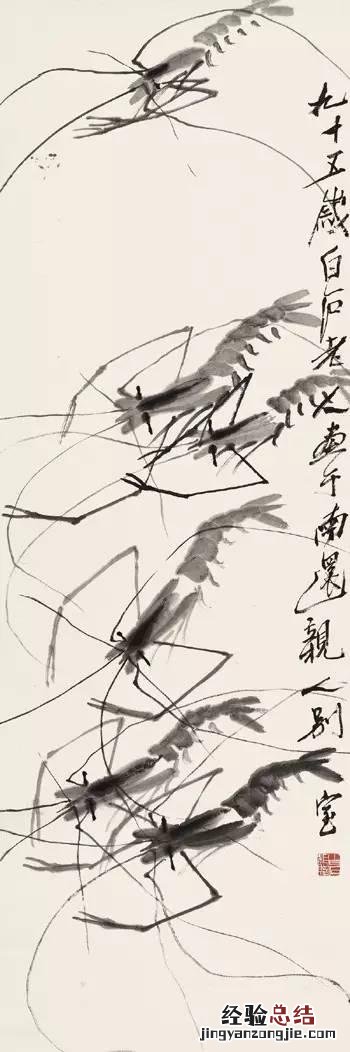 九十五歲白石老人畫于南還親人別
室
经验总结
jingyanzongjie.com